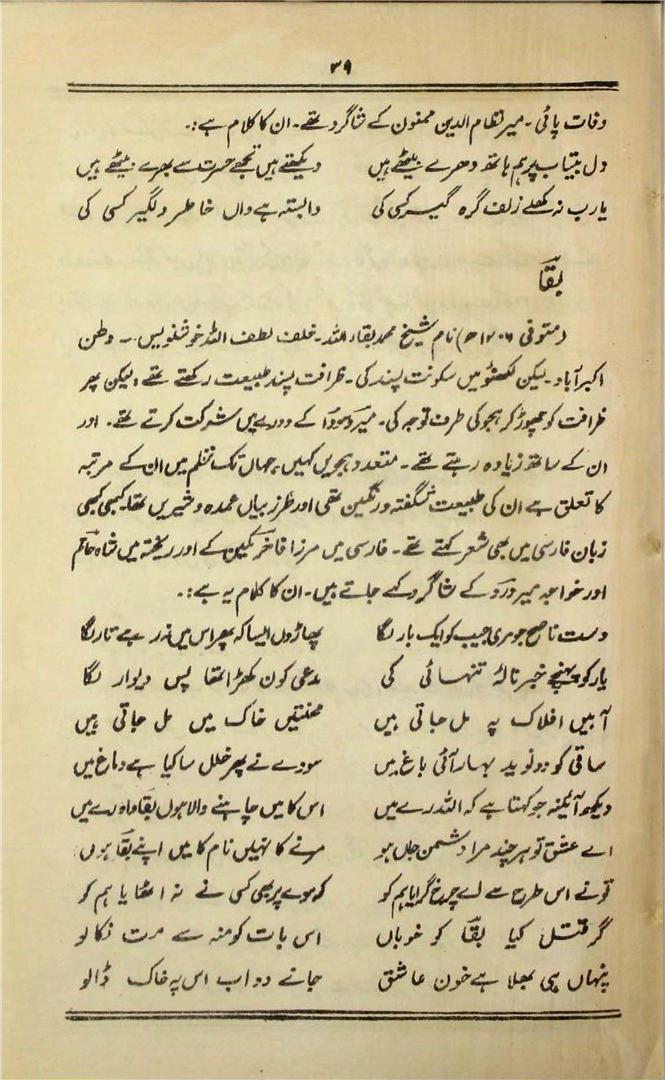 ۳۹
وفات پائی۔ میر نظام الدین ممنون کے شاگرد تھے۔ ان کا کلام ہے:۔
دل بیتاب پر ہم ہاتھ دھرے بیٹھے ہیں دیکھتے ہیں تجھے حسرت سے بھرے بیٹھے ہیں
یارب نہ کھلے زلف گرہ گیر کسی کی وابستہ ہے واں خاطر دلگیر کسی کی
بقا
(متوفی ۱۲۰۶ھ) نام شیخ محمد بقاء اللہ۔ خلف لطف اللہ خوشنویس۔ وطن
اکبرآباد۔ لیکن لکھنؤ میں سکونت پسند کی۔ ظرافت پسند طبیعت رکھتے تھے، لیکن پھر
ظرافت کو چھوڑ کر ہجو کی طرف توجہ کی۔ میر و سودا کے دورے میں شرکت کرتے تھے۔ اور
ان کے ساتھ زیادہ رہتے تھے۔ متعدد ہجویں کہیں، جہاں تک نظم میں ان کے مرتبہ
کا تعلق ہے ان کی طبیعت شگفتہ و رنگین تھی اور طرز بیاں عمدہ و شیریں تھا۔ کبھی کبھی
زبان فارسی میں بھی شعر کہتے تھے۔ فارسی میں مرزا فاخر مکین کے اور ریختہ میں شاہ حاتم
اور خواجہ میر درد کے شاگرد کہے جاتے ہیں۔ ان کا کلام یہ ہے:۔
دست ناصح جو مری جیب کو ایک بار لگا پھاڑوں ایسا کہ پھر اس میں نہ رہے تار لگا
یار کو پہنچے خبر نالۂ تنہائی کی مدعی کون کھڑا تھا پس دیوار لگا
آہیں افلاک پہ مل جاتی ہیں محنتیں خاک میں مل جاتی ہیں
ساقی کو دو نوید بہار آئی باغ میں سودے نے پھر خلل سا کیا ہے دماغ میں
دیکھ آئینہ جو کہتا ہے کہ اللہ رے میں اس کا میں چاہنے والا ہوں بقا واہ رے میں
اے عشق تو ہر چند مرا دشمن جاں ہو مرنے کا نہیں نام کا میں اپنے بقا ہوں
تو نے اس طرح سے اے چرخ گرایا ہم کو کہ موے پر بھی کسی نے نہ اٹھایا ہم کو
گر قتل کیا بقا کو خوباں اس بات کو منہ سے مت نکالو
پنہاں ہی بھلا ہے خون عاشق جانے دو اب اس پہ خاک ڈالو